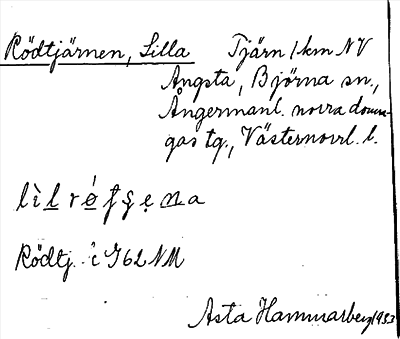 Rödtjärnen, Lilla Tjärn 1 km NV
Ängsta, Björna sn.,
Ångermanl. norra doms-
gas tg., Västernorrl. l.
Rödtj. i G62 NM
Asta Hammarberg 1933